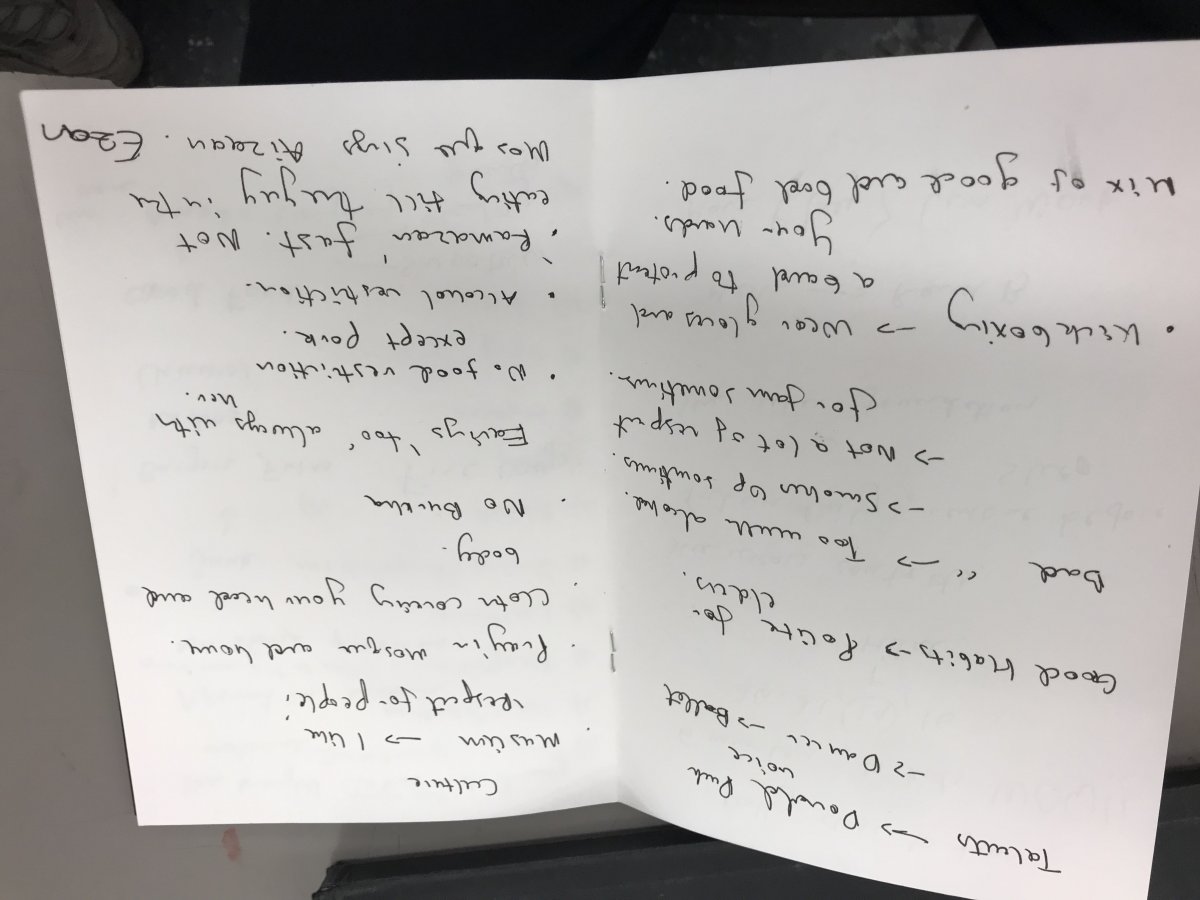 Talents → Donald Duck
voice
→ Dances → Ballet
Good Habits → Polite for
elders.
Bad " → Too much alcohol.
→ Smokes up sometimes.
→ Not a lot of respect
for fam sometimes.
• Kickboxing → Wear gloves and
a band to protect
your hands.
Mix of good and bad food.
Culture
• Muslim → I like
respect for people.
• Pray in mosque and home.
• Cloth covering your head and
body.
• No Burkha
Earings 'too' always with
her.
• No food restriction
except pork.
• Alcohol restriction.
• 'Ramazan' fast. Not
eating till the guy in the
Mosque sings Aizaan. Ezan